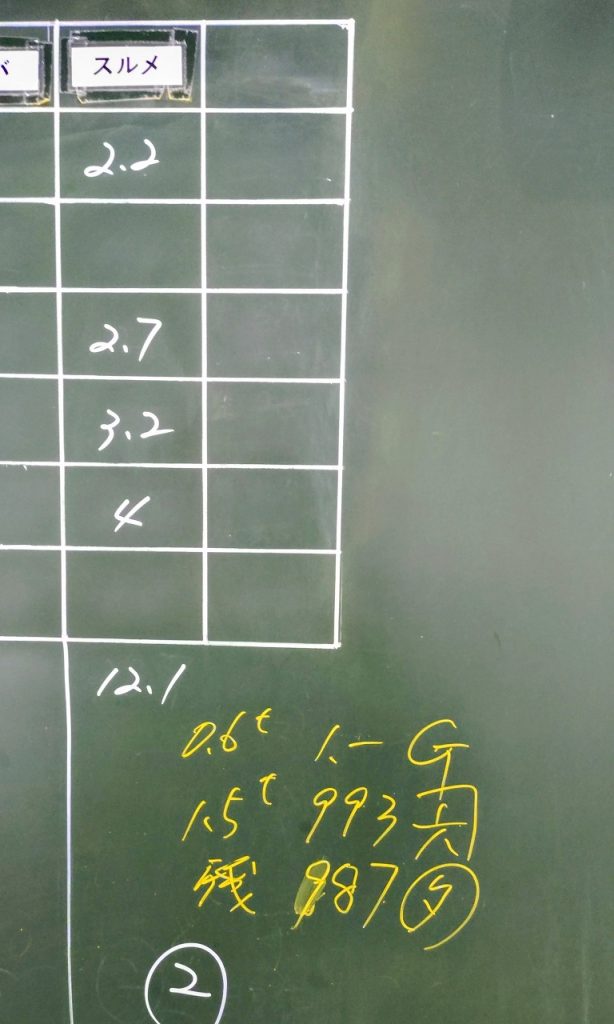 バ スルメ
2.2
2.7
3.2
4
12.1
0.6t 1.-
1.5t 993
残 987 タ
2